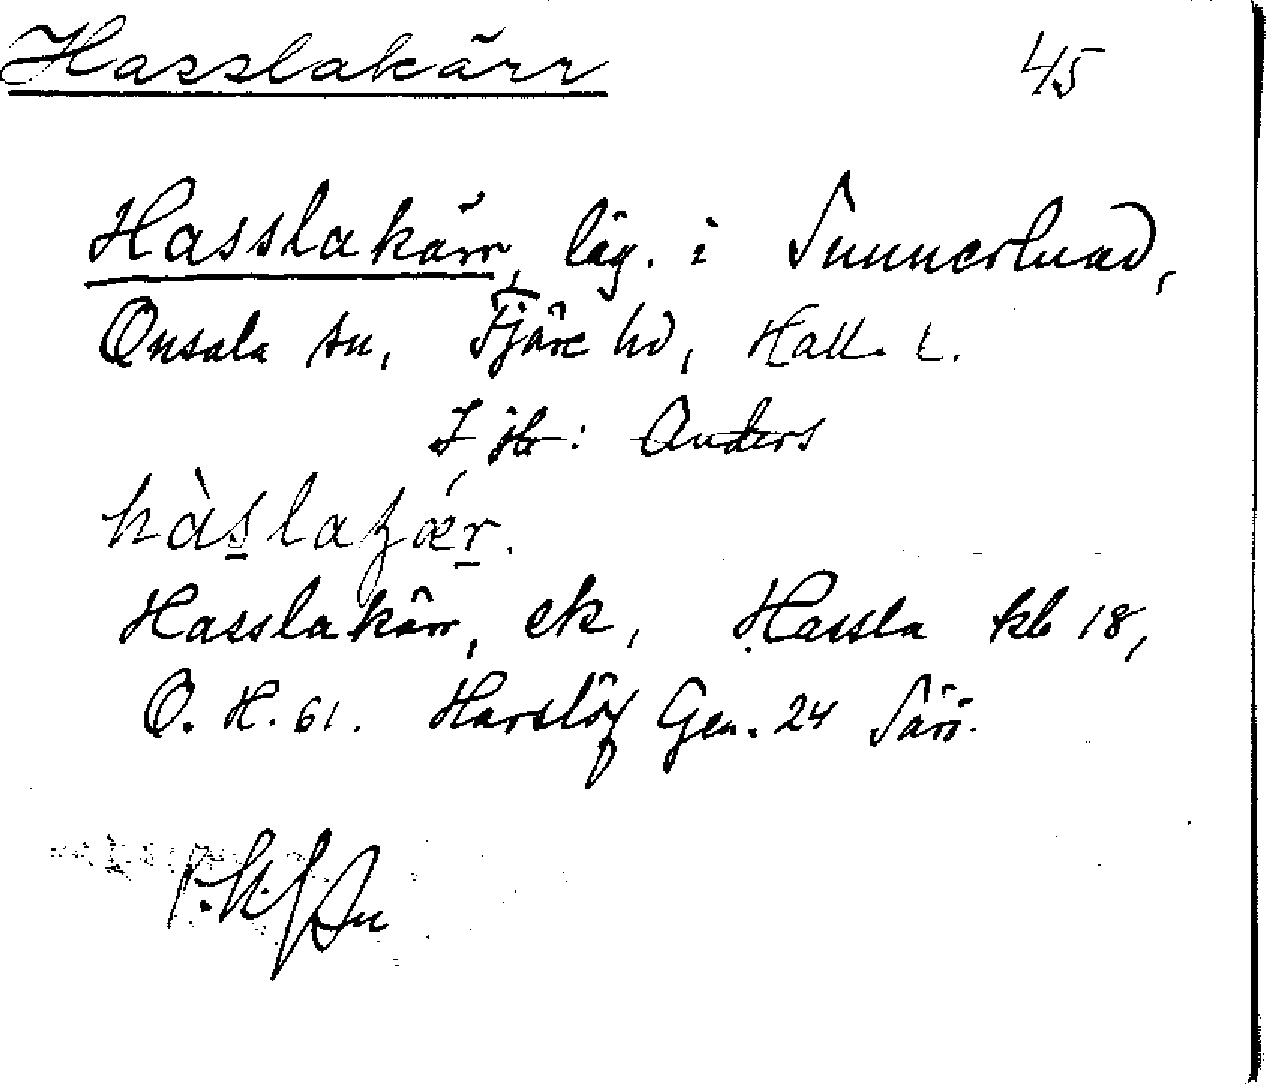 Hasslakärr 45
Hasslakärr, läg. i Sunnerlund,
Onsala sn, Fjäre hd, Hall. l.
Anders
hàs̱laȥǽṟ.
Hasslakärr, ek, Hassla kb 18,
O. H. 61. Harslöf Gen. 24 Särö.